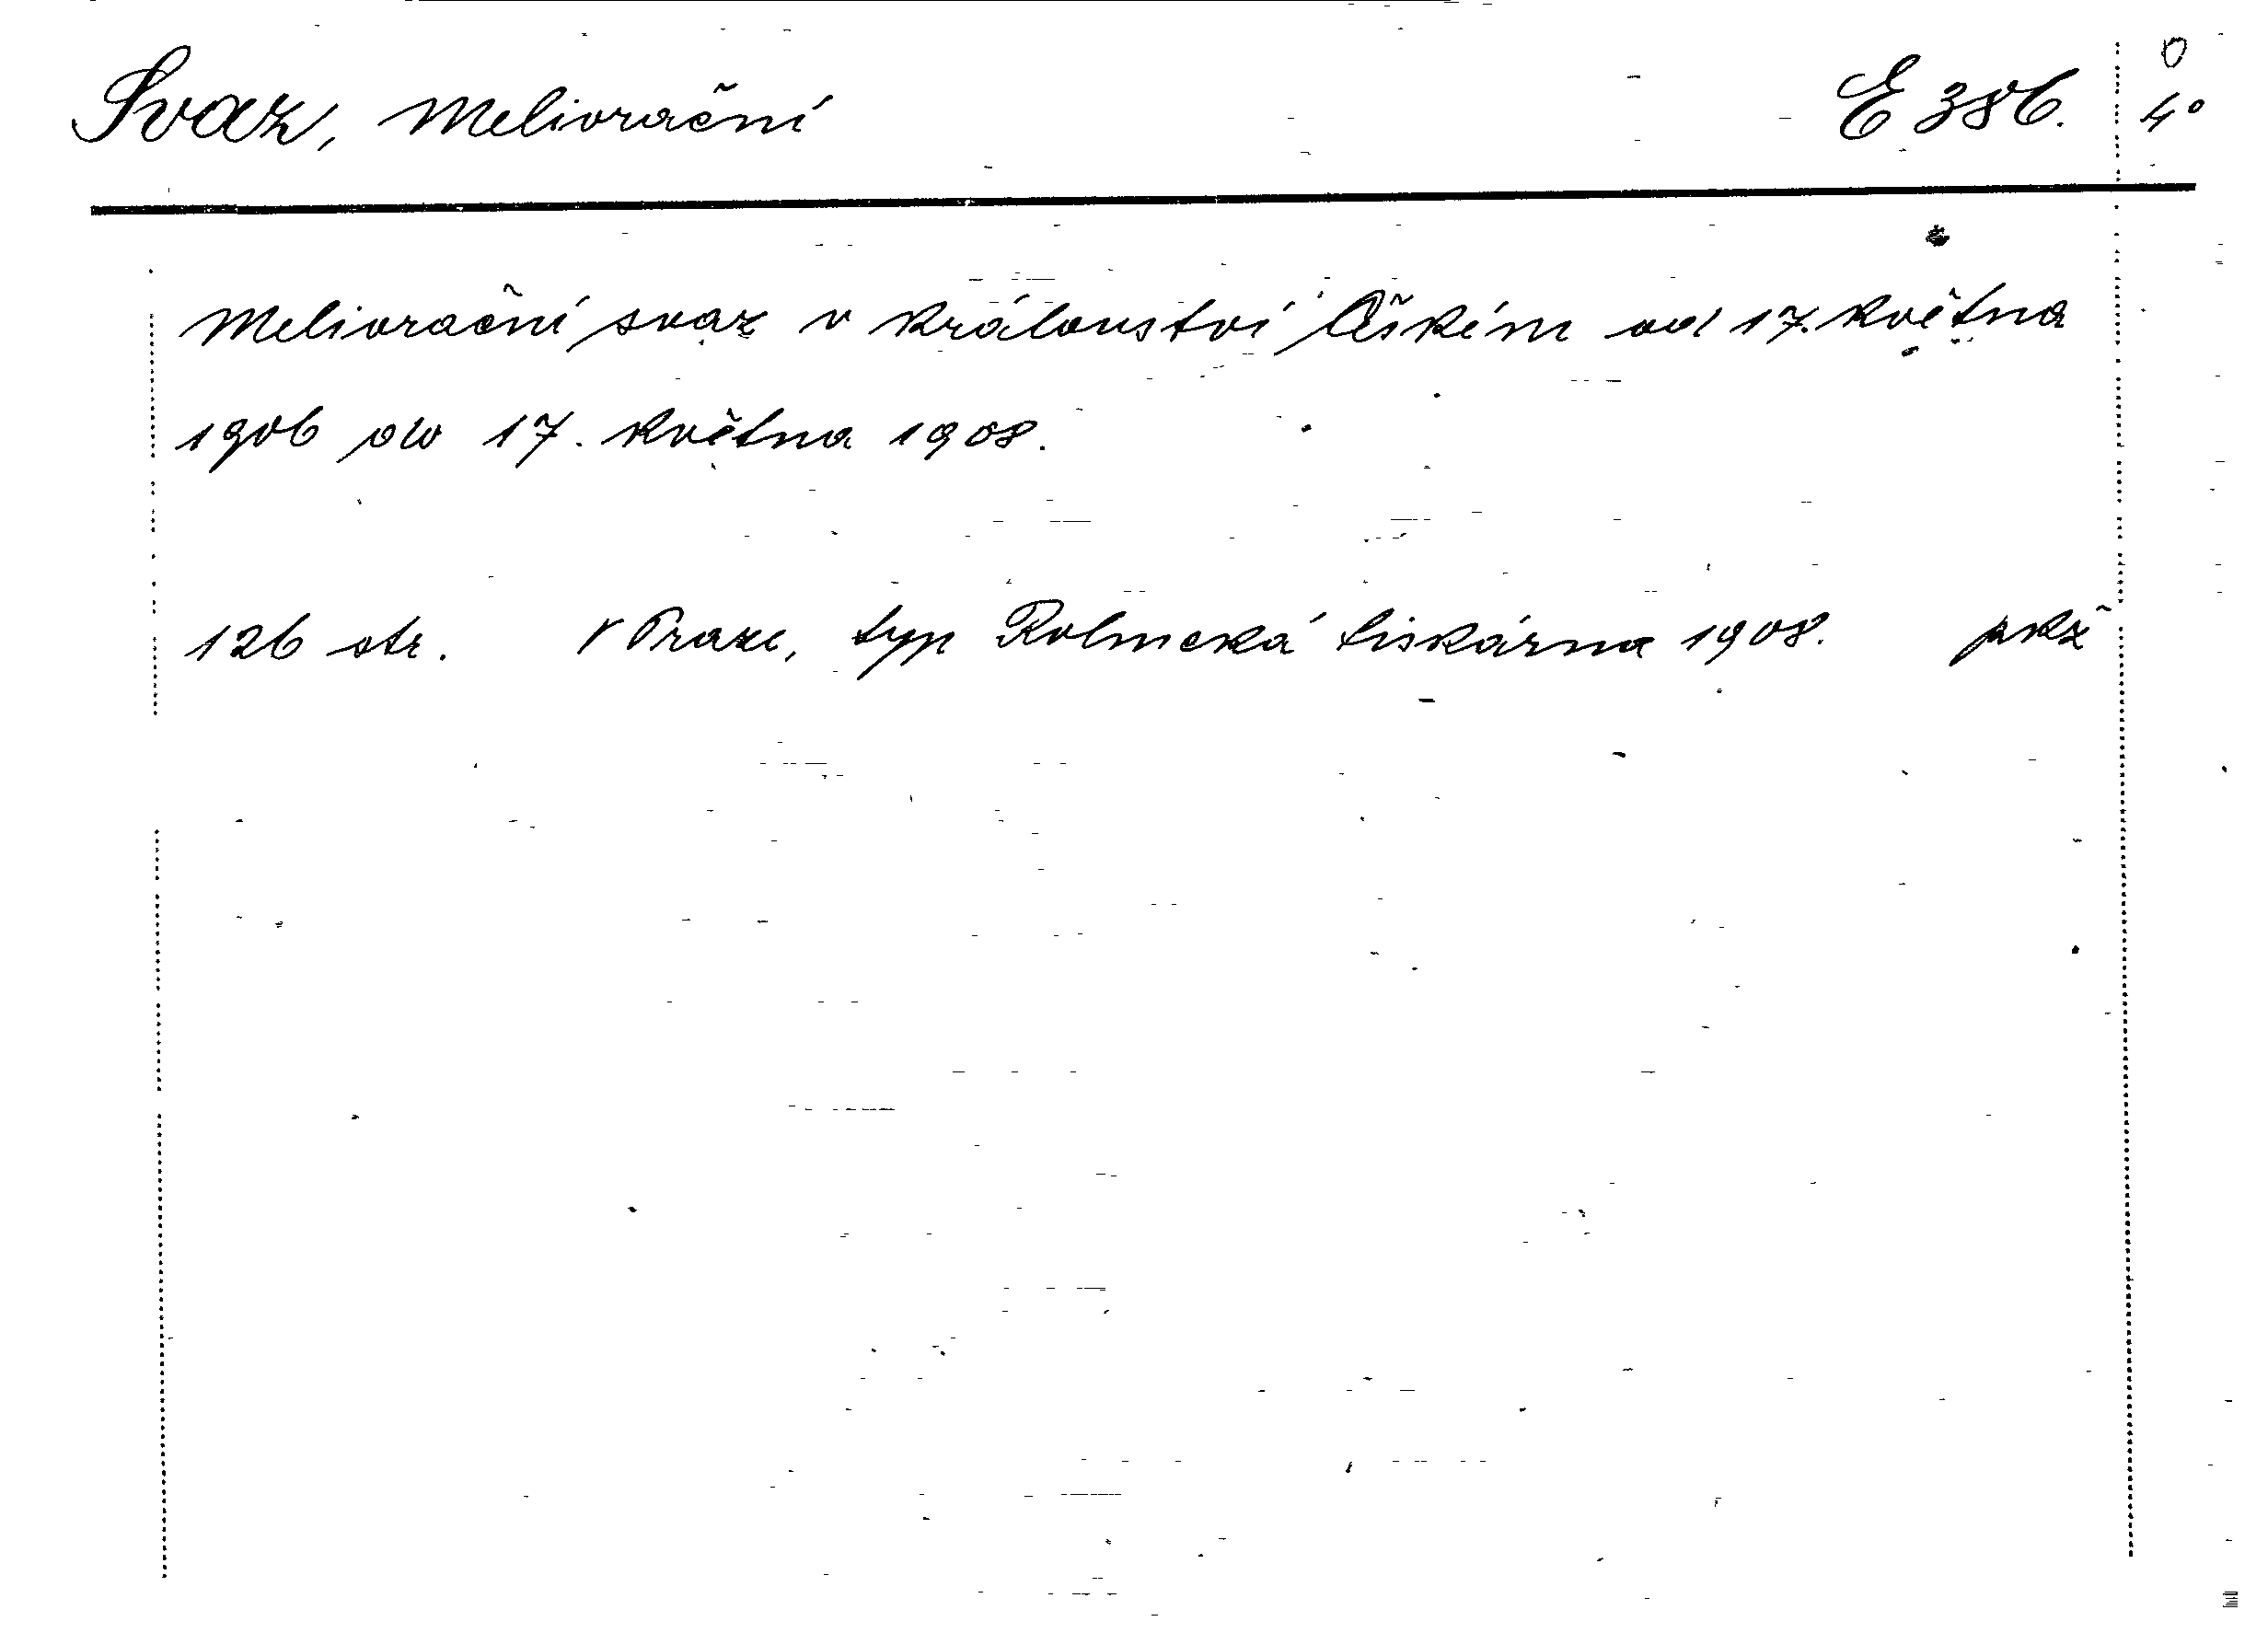 Svaz, Meliorační E 386. 0 4°
Meliorační svaz v království Českém od 17. května
1906 do 17. května 1908.
126 str. V Praze, typ Rolnická tiskárna 1908.